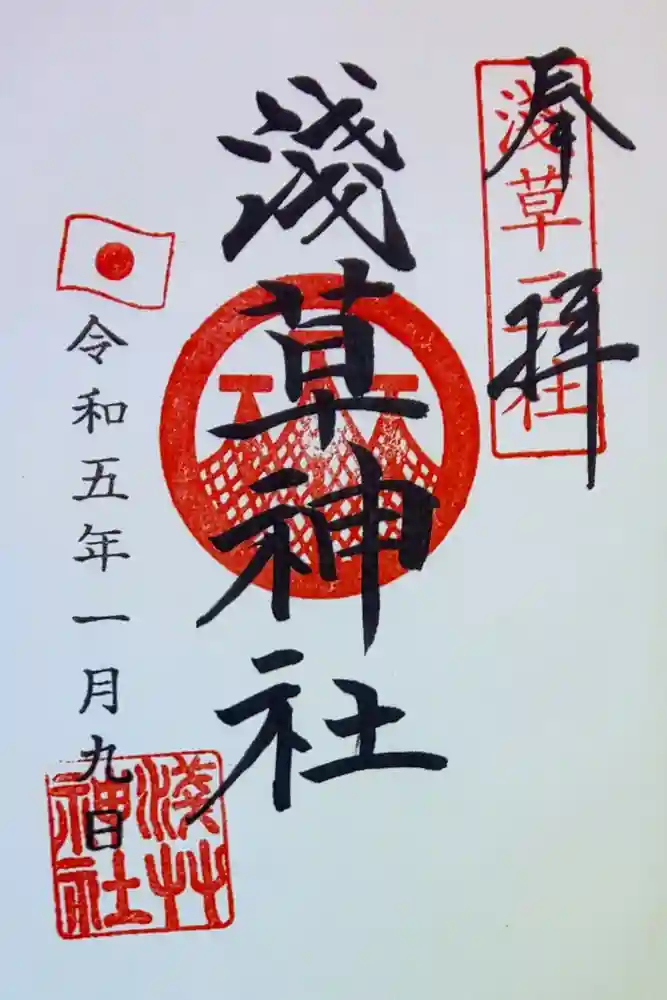 奉拝
淺草三社
淺草神社
令和五年一月九日
淺草
神社